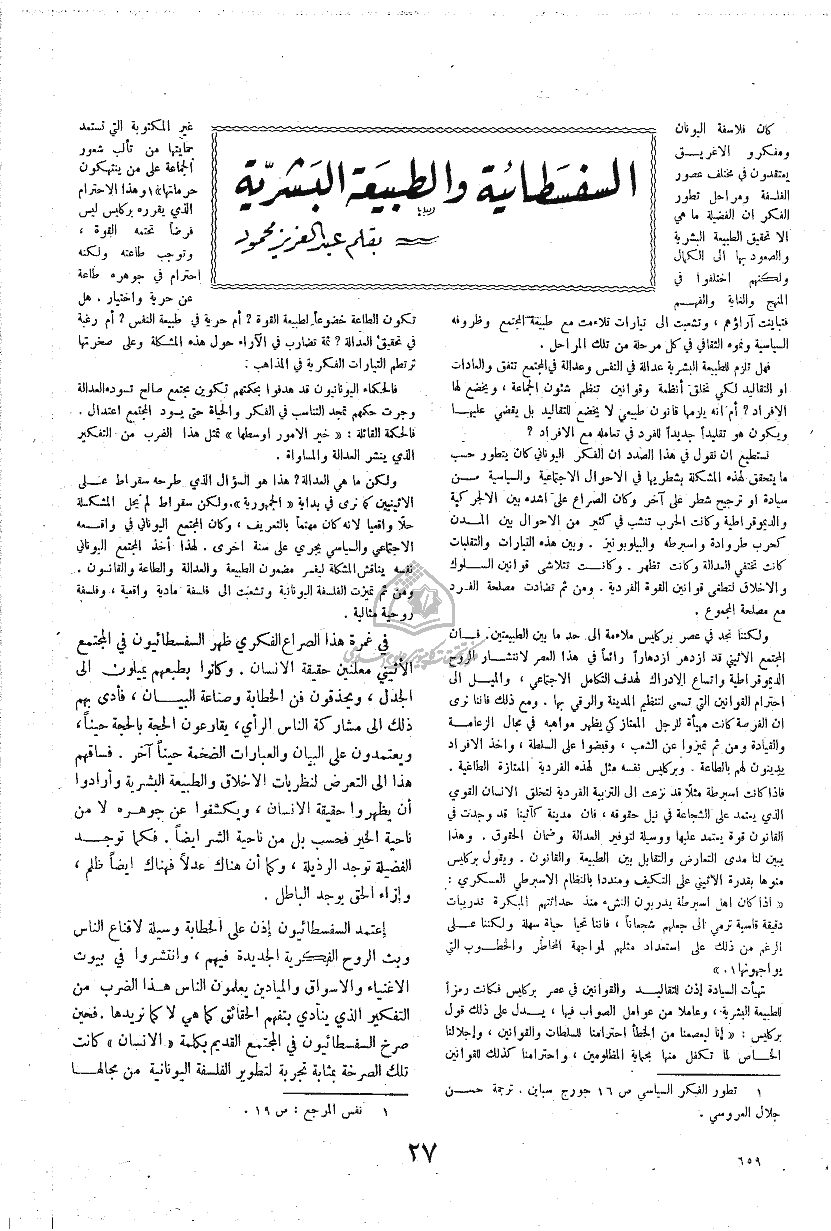 السفسطائية والطبيعة البشرية
بقلم عبد العزيز محمود
كان فلاسفة اليونان
ومفكرو الاغريق
يعتقدون في مختلف عصور
الفلسفة ومراحل تطور
الفكر ان الفضيلة ما هي
الا تحقيق الطبيعة البشرية
والصعود بها الى الكمال
ولكنهم اختلفوا في
المنهج والغاية والفهم
فتباينت آراؤهم ، وتشعبت الى تيارات تلاءمت مع طبيعة المجتمع وظروفه
السياسية ونموه الثقافي في كل مرحلة من تلك المراحل .
فهل تلزم للطبيعة البشرية عدالة في النفس وعدالة في المجتمع تتفق والعادات
او التقاليد لكي نخلق أنظمة وقوانين تنظم شئون الجماعة ، ويخضع لها
الافراد ? أم انه يلزمها قانون طبيعي لا يخضع للتقاليد بل يقضي عليها
ويكون هو تقليداً جديداً للفرد في تعامله مع الافراد ?
نستطيع ان نقول في هذا الصدد ان الفكر اليوناني كان يتطور حسب
ما يتحقق لهذه المشكلة بشطريها في الاحوال الاجتماعية والسياسية من
سيادة او ترجيح شطر على آخر وكان الصراع على اشده بين الالجركية
والديموقراطية وكانت الحرب تنشب في كثير من الاحوال بين المدن
كحرب طروادة واسبرطه والبيلوبونيز . وبين هذه التيارات والتقلبات
كانت تختفي العدالة وكانت تظهر . وكانت تتلاشى قوانين السلوك
والاخلاق لتطغى قوانين القوة الفردية . ومن ثم تضادت مصلحة الفرد
مع مصلحة المجموع .
ولكننا نجد في عصر بركليس ملاءمة الى حد ما بين الطبيعتين. فان
المجتمع الاثيني قد ازدهر ازدهاراً رائعاً في هذا العصر لانتشار الروح
الديموقراطية واتساع الادراك لهدف التكامل الاجتماعي ، والميل الى
احترام القوانين التي تسعى لتنظيم المدينة والرقي بها . ومع ذلك فاننا نرى
ان الفرصة كانت مهيأة للرجل الممتاز كي يظهر مواهبه في مجال الزعامة
والقيادة ومن ثم تميزوا عن الشعب ، وقبضوا على السلطة ، واخذ الافراد
يدينون لهم بالطاعة . وبركليس نفسه مثل لهذه الفردية الممتازة الطاغية .
فاذا كانت اسبرطة مثلا قد نزعت الى التربية الفردية لتخلق الانسان القوي
الذي يعتمد على الشجاعة في نيل حقوقه ، فان مدينة كأثينا قد وجدت في
القانون قوة يعتمد عليها ووسيلة لتوفير العدالة وضمان الحقوق . وهذا
يبين لنا مدى التعارض والتقابل بين الطبيعة والقانون . ويقول بركليس
منوها بقدرة الاثيني على التكيف ومنددا بالنظام الاسبرطي العسكري :
« اذا كان اهل اسبرطة يدربون النشء منذ حداثتهم المبكرة تدريبات
دقيقة قاسية ترمي الى جعلهم شجعاناً ، فاننا نحيا حياة سهلة ولكننا على
الرغم من ذلك على استعداد مثلهم لمواجهة المخاطر والخطوب التي
يواجهونها١ . »
تهيأت السيادة إذن للتقاليد والقوانين في عصر بركليس فكانت رمزاً
للطبيعة البشرية ، وعاملا من عوامل الصواب فيها ، يدل على ذلك قول
بركليس : « إنا ليعصمنا من الخطأ احترامنا للسلطات والقوانين ، واجلالنا
الخاص لما تكفل منها بحماية المظلومين ، واحترامنا كذلك للقوانين
١ تطور الفكر السياسي ص ١٦ جورج سباين . ترجمة حسن
جلال العروسي .
غير المكتوبة التي تستمد
حمايتها من تألب شعور
الجماعة على من ينتهكون
حرماتها»١ وهذا الاحترام
الذي يقرره بركليس ليس
فرضاً تحتمه القوة ،
وتوجب طاعته ولكنه
احترام في جوهره طاعة
عن حرية واختيار . هل
تكون الطاعة خضوعاً لطبيعة القوة ? أم حرية في طبيعة النفس ? أم رغبة
في تحقيق العدالة ? ثمة تضارب في الآراء حول هذه المشكلة وعلى صخرتها
ترتطم التيارات الفكرية في المذاهب :
فالحكماء اليونانيون قد هدفوا بحكمتهم تكوين مجتمع صالح تسوده العدالة
وجرت حكمهم تمجد التناسب في الفكر والحياة حتى يسود المجتمع اعتدال .
فالحكمة القائلة : « خير الامور اوسطها » تمثل هذا الضرب من التفكير
الذي ينشر العدالة والمساواة .
ولكن ما هي العدالة? هذا هو السؤال الذي طرحه سقراط على
الاثينيين كما نرى في بداية « الجمهورية ». ولكن سقراط لم يحل المشكلة
حلا واقعيا لانه كان مهتماً بالتعريف ، وكان المجتمع اليوناني في واقعه
الاجتماعي والسياسي يجري على سنة اخرى . لهذا أخذ المجتمع اليوناني
نفسه يناقش المشكلة ليفسر مضمون الطبيعة والعدالة والطاعة والقانون .
ومن ثم تميزت الفلسفة اليونانية وتشعبت الى فلسفة مادية واقعية ، وفلسفة
روحية مثالية .
في غمرة هذا الصراع الفكري ظهر السفسطائيون في المجتمع
الأثيني معلنين حقيقة الانسان . وكانوا بطبعهم يميلون الى
الجدل ، ويحذقون فن الخطابة وصناعة البيان ، فأدى بهم
ذلك الى مشاركة الناس الرأي، يقارعون الحجة بالحجة حيناً،
ويعتمدون على البيان والعبارات الضخمة حيناً آخر . فساقهم
هذا الى التعرض لنظريات الاخلاق والطبيعة البشرية وأرادوا
أن يظهروا حقيقة الانسان ، ويكشفوا عن جوهره لا من
ناحية الخير فحسب بل من ناحية الشر ايضاً . فكما توجد
الفضيلة توجد الرذيلة ، وكما أن هناك عدلاً فهناك ايضاً ظلم ،
وإزاء الحق يوجد الباطل .
إعتمد السفسطائيون إذن على الخطابة وسيلة لاقناع الناس
وبث الروح الفكرية الجديدة فيهم ، وانتشروا في بيوت
الاغنياء والاسواق والميادين يعلمون الناس هذا الضرب من
التفكير الذي ينادي بتفهم الحقائق كما هي لا كما نريدها . فحين
صرخ السفسطائيون في المجتمع القديم بكلمة « الانسان » كانت
تلك الصرخة بمثابة تجربة لتطوير الفلسفة اليونانية من مجالها
١ نفس المرجع : ص ١٩ .
٢٧
٦٥٩